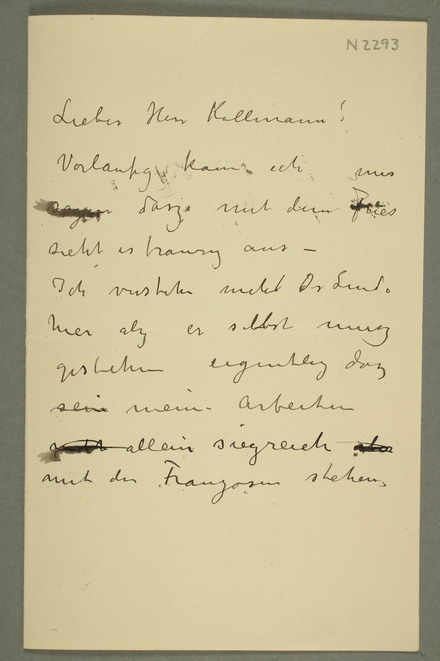 N2293
Lieber Herr Kollmann!
Vorläufig kann ich nur
sagen dasz mit dem Fries
sieht es traurig aus —
Ich verstehe nicht Dr Lind.
hier als er selbst musz
gestehen eigentlig dasz
sein meine Arbeiten
allein siegreich
mit den Franzosen stehen.